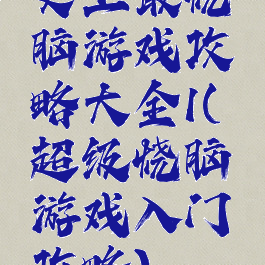 史上最烧
脑游戏攻
略大全((
超级烧脑
游戏入门
攻略)